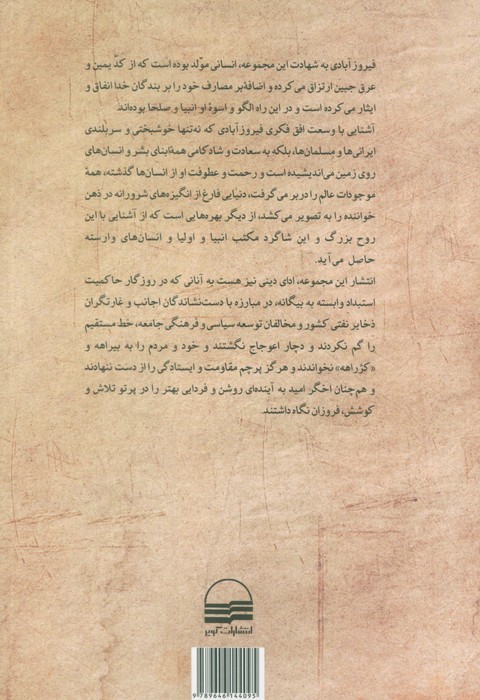 فیروزآبادی به شهادت این مجموعه، انسانی مولّد بوده است که از کدّ یمین و
عرق جبین ارتزاق می‌کرده و اضافهٔ بر مصارف خود را بر بندگان خدا انفاق و
ایثار می‌کرده است و در این راه الگو و اسوهٔ او انبیا و صلحا بوده‌اند.
آشنایی با وسعت افق فکری فیروزآبادی که نه‌تنها خوشبختی و سربلندی
ایرانی‌ها و مسلمان‌ها، بلکه به سعادت و شادکامی همهٔ ابنای بشر و انسان‌های
روی زمین می‌اندیشیده است و رحمت و عطوفت او از انسان‌ها گذشته، همهٔ
موجودات عالم را دربر می‌گرفت، دنیایی فارغ از انگیزه‌های شرورانه در ذهن
خواننده را به تصویر می‌کشد، از دیگر بهره‌هایی است که از آشنایی با این
روح بزرگ و این شاگرد مکتب انبیا و اولیا و انسان‌های وارسته
حاصل می‌آید.
انتشار این مجموعه، ادای دینی نیز هست به آنانی که در روزگار حاکمیت
استبداد وابسته به بیگانه، در مبارزه با دست‌نشاندگان اجانب و غارتگران
ذخایر نفتی کشور و مخالفان توسعه سیاسی و فرهنگی جامعه، خط مستقیم
را گم نکردند و دچار اعوجاج نگشتند و خود و مردم را به بیراهه و
«کژراهه» نخواندند و هرگز پرچم مقاومت و ایستادگی را از دست ننهادند
و هم‌چنان اخگر امید به آینده‌ای روشن و فردایی بهتر را در پرتو تلاش و
کوشش، فروزان نگاه داشتند.
انتشارات کویر
9 789646 144095